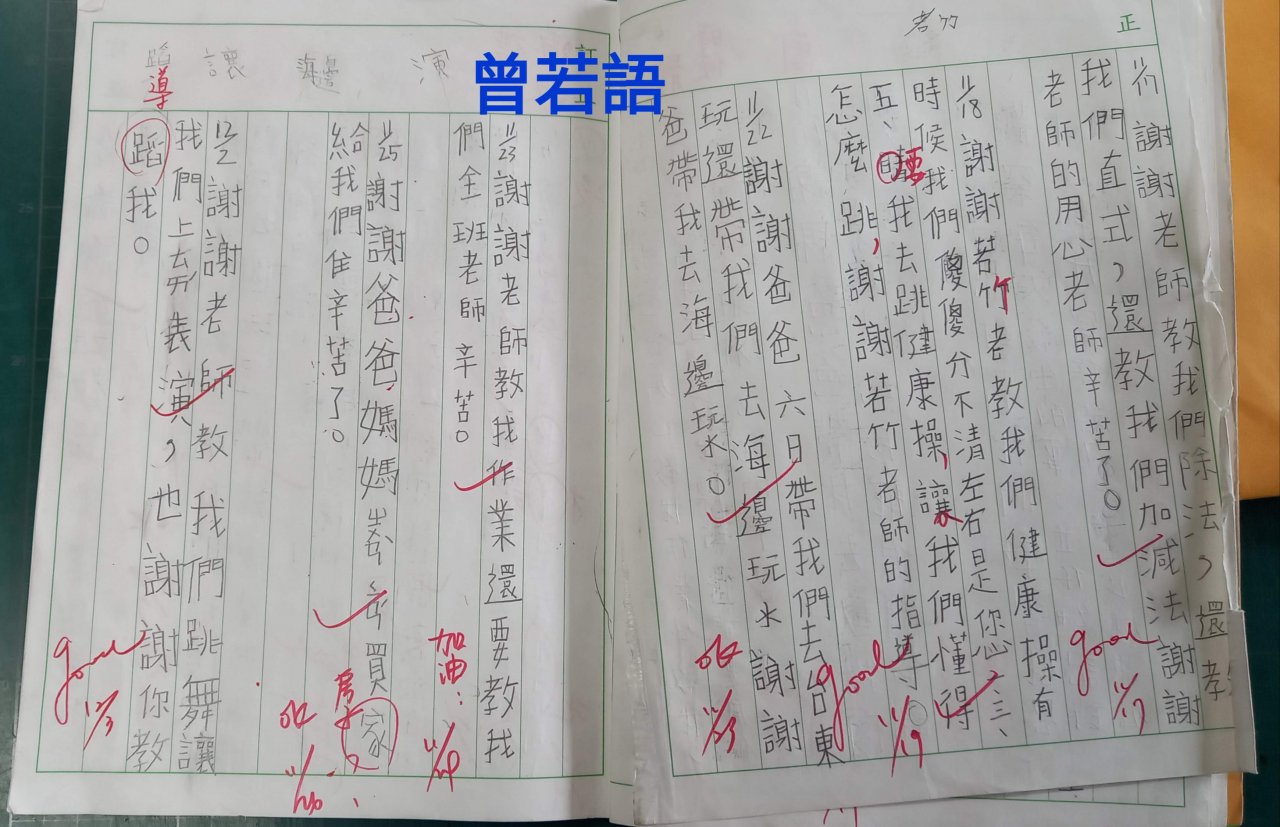 正
若竹
11/17 謝謝老師教我們除法,還教
我們直式,還教我們加減法謝謝
老師的用心老師辛苦了。
good 11/17
11/18 謝謝若竹老教我們健康操有
時候我們傻傻分不清左右是您三、
五、腰我去跳健康操,讓我們懂得
怎麼跳,謝謝若竹老師的指導。
good 11/19
11/22 謝謝爸爸六日帶我們去台東
玩還帶我們去海邊玩水謝謝
爸帶我去海邊玩水。
ok 11/23
曾若語
訂正
演
海邊
讓
蹈
導
11/23 謝謝老師教我作業還要教我
們全班老師辛苦。
加油! 11/24
11/25 謝謝爸爸,媽媽買家
給我們住辛苦了。
房子
ok 11/26
12/2 謝謝老師教我們跳舞讓
我們上ㄊㄞ表演,也謝謝你教
蹈我。
good 12/3